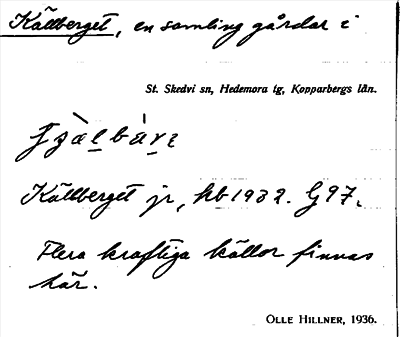 Källberget, en samling gårdar i
St. Skedvi sn, Hedemora tg, Kopparbergs län.
Källberget jr, hb 1932. G 97.
Flera kraftiga källor finnas
här.
OLLE HILLNER, 1936.